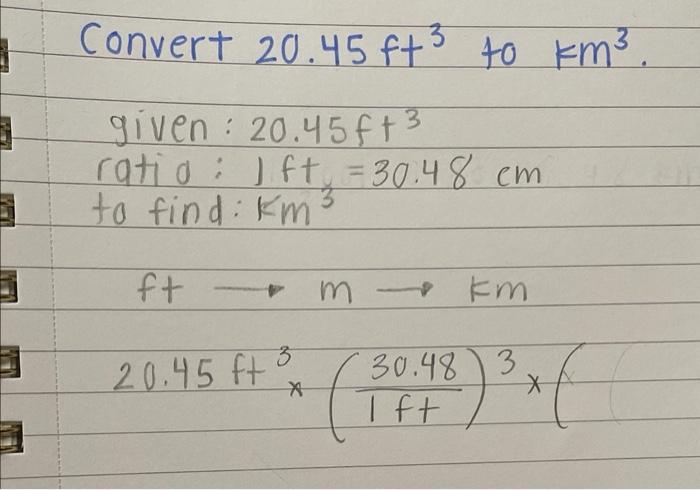 Convert 20.45 ft³ to km³.
given : 20.45 ft³
ratio : 1 ft = 30.48 cm
to find : km³
ft → m → km
20.45 ft³ × (30.48 / 1 ft)³ × (